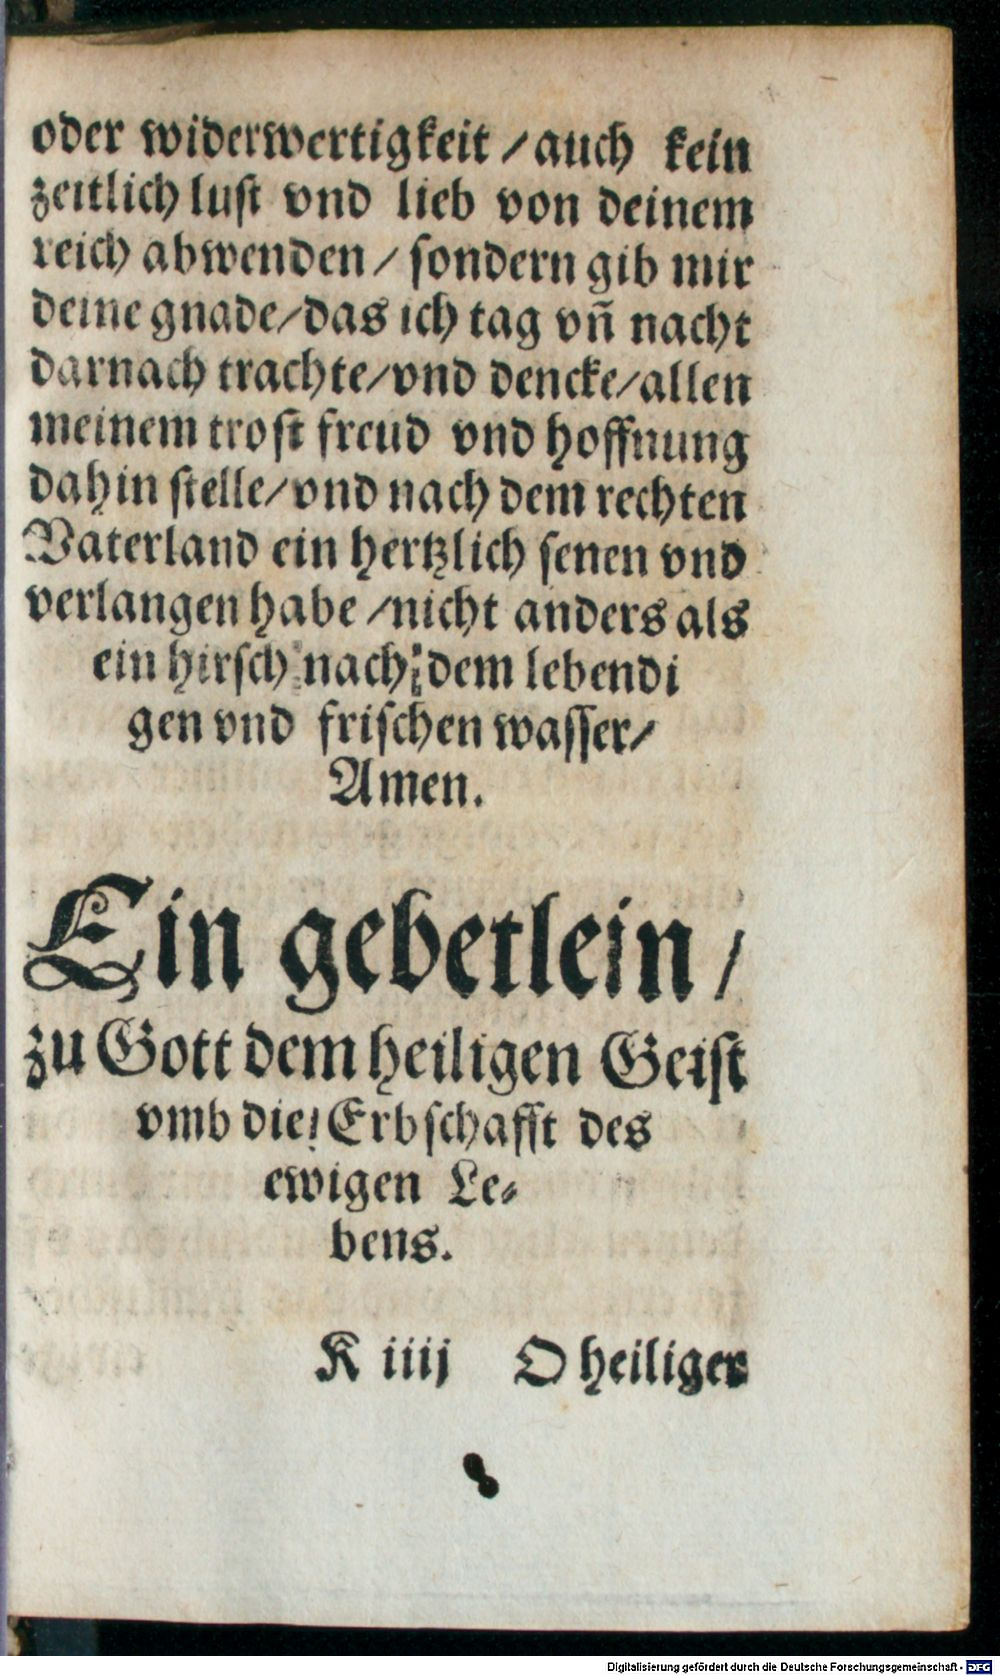 oder widerwertigkeit / auch kein
zeitlich lust vnd lieb von deinem
reich abwenden / sondern gib mir
deine gnade / das ich tag vñ nacht
darnach trachte / vnd dencke / allen
meinem trost freud vnd hoffnung
dahin stelle / vnd nach dem rechten
Vaterland ein hertzlich senen vnd
verlangen habe / nicht anders als
ein hirsch nach dem lebendi
gen vnd frischen wasser /
Amen.
Ein gebetlein /
zu Gott dem heiligen Geist
vmb die Erbschafft des
ewigen Le-
bens.
K iiij O heiliger
Digitalisierung gefördert durch die Deutsche Forschungsgemeinschaft - DFG